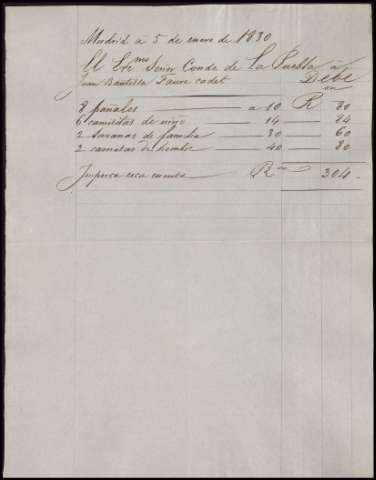 Madrid à 5 de enero de 1830
El Exmo Senor Conde de La Puebla a
Juan Bautista Faure cadet Debe
en
8 pañales a 10 R 80
6 camisitas de nijo 14 84
2 Savanas de familia 30 60
2 camisas de hombre 40 80
Importa esta cuenta Rn 304